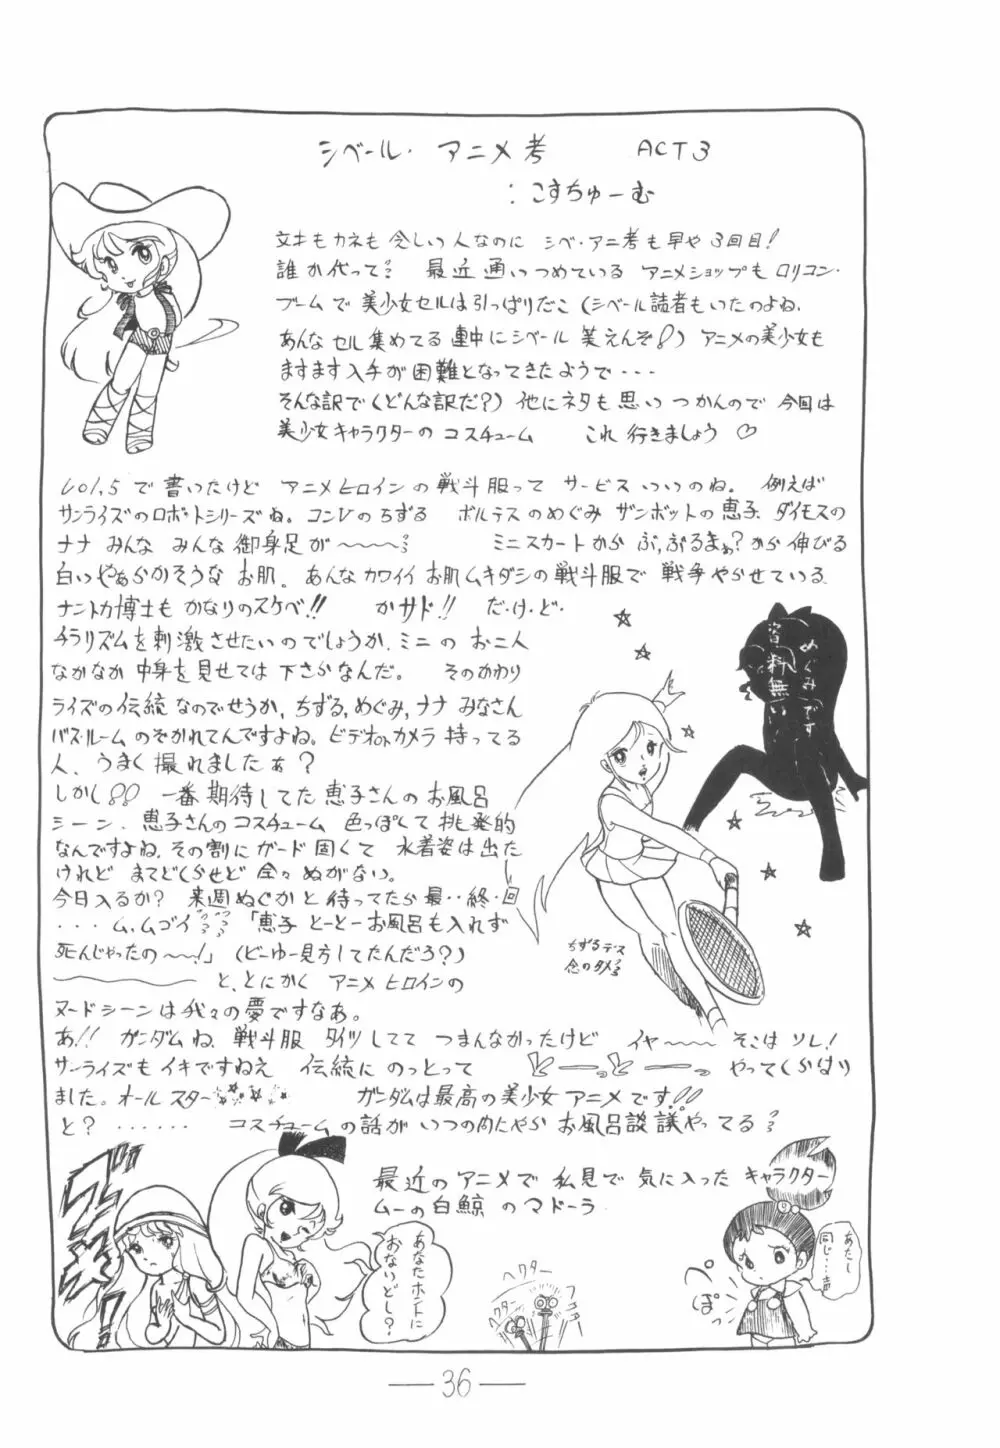 シベール・アニメ考 ACT3
：こすちゅーむ
文才もカネも乏しい人なのに シベ・アニ考も早や3回目!
誰か代って? 最近通いつめている アニメショップもロリコン・
ブームで美少女セルは引っぱりだこ(シベール読者もいたのよね.
あんなセル集めてる連中にシベール 笑えんぞ!) アニメの美少女も
ますます入手が困難となってきたようで・・・
そんな訳で(どんな訳だ?) 他にネタも思いつかんので今回は
美少女キャラクターのコスチューム これ行きましょう♡
Vol,5で書いたけど アニメヒロインの戦斗服ってサービスいいのね。例えば
サンライズのロボットシリーズね。コンVのちずる ボルテスのめぐみ ザンボットの恵子 ダイモスの
ナナ みんなみんな御身足が〜〜〜〜? ミニスカートから ぷ,ぷるまぁ?から伸びる
白いやわらかそうなお肌。あんなカワイイお肌ムキダシの戦斗服で戦争やらせている
ナントカ博士もかなりのスケベ!! かサド!! だ・け・ど・
チラリズムを刺激させたいのでしょうか.ミニのお二人
なかなか中身を見せては下さらなんだ。 そのかわり
ライズの伝統なのでせうか,ちずる,めぐみ,ナナみなさん
バスルームのぞかれてんですよね。ビデオotカメラ持ってる
人、うまく撮れましたぁ?
しかし!! 一番期待してた恵子さんのお風呂
シーン.恵子さんのコスチューム 色っぽくて挑発的
なんですよね.その割にガード固くて 水着姿は出た
けれど まてどくらせど全々ぬがない。
今日入るか? 来週ぬぐかと待ってたら最・・終・回
・・・・ム,ムゴイ??? 「恵子とーとーお風呂も入れず
死んじゃったの〜〜!」(どーゆー見方してたんだろ?)
〜〜〜〜〜 と,とにかく アニメヒロインの
ヌードシーンは我々の夢ですなあ。
あ!! ガンダムね.戦斗服 タイツしてて つまんなかったけど イヤ〜〜〜 そこはソレ!
サンライズもイキですねえ 伝統にのっとって やってくらはり
ました。オールスター☆☆☆☆ ガンダムは最高の美少女アニメです!!
と?・・・・・・ コスチュームの話がいつの内にやらお風呂談議やってる?
最近のアニメで私見で気に入ったキャラクター
ムーの白鯨のマドーラ
めぐみです
資料無い
ちずるデス
念のタメ
あなたホントに
おないどし?
ヘクター
ヘクター
あたし
同じ・・・声
ぽっ
36